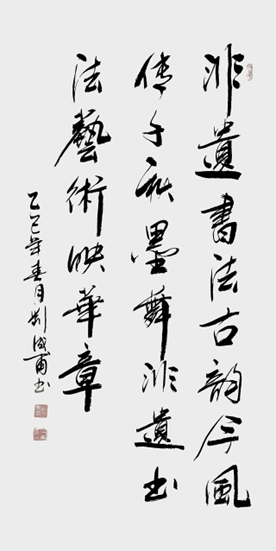 非遺書法古韵今風
传千秋墨舞非遺书
法藝術映華章
乙巳年春月刘成甫书